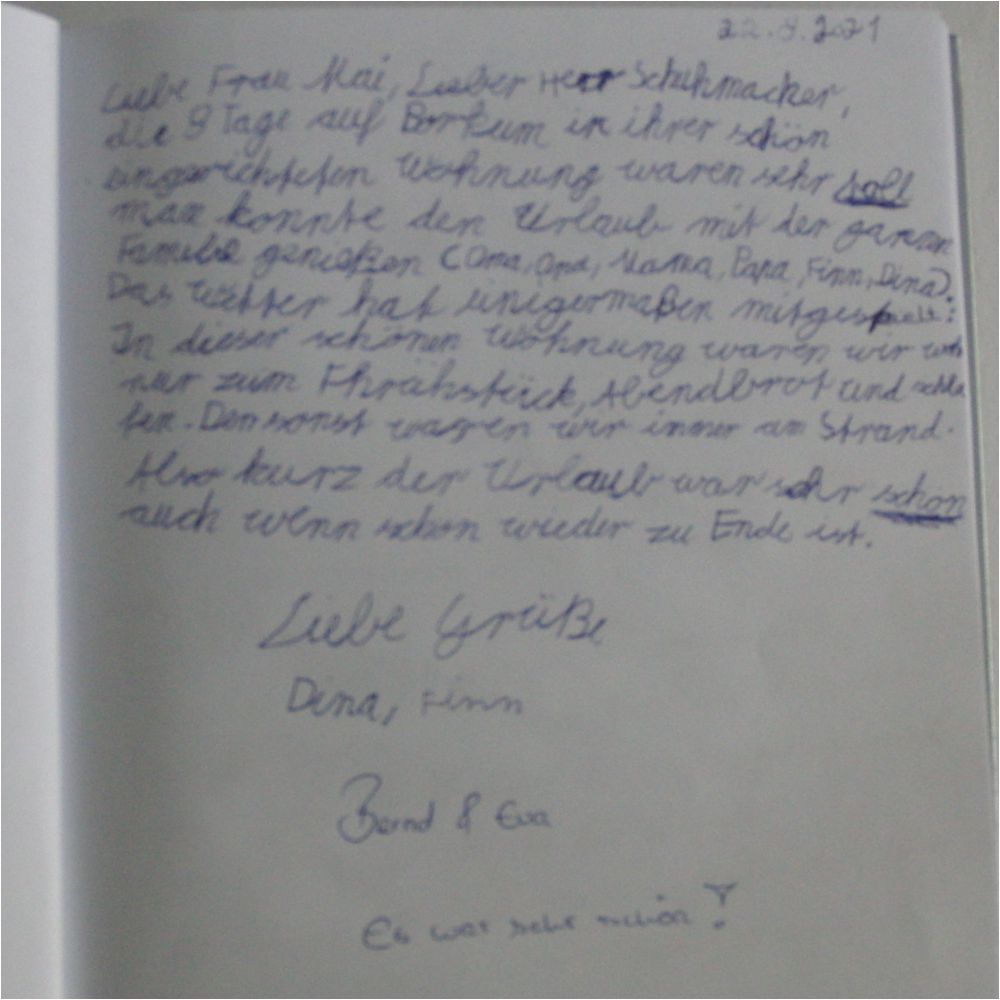 22.8.2021
Liebe Frau Mai, Lieber Herr Schuhmacher,
die 9 Tage auf Borkum in ihrer schön
eingerichteten Wohnung waren sehr toll
man konnte den Urlaub mit der ganzen
Familie genießen (Oma, Opa, Mama, Papa, Finn, Dina).
Das Wetter hat einigermaßen mitgespielt:
In dieser schönen Wohnung waren wir
nur zum Fhrühstück, Abendbrot und schla
fen. Den sonst waren wir immer am Strand.
Also kurz der Urlaub war sehr schön
auch wenn schon wieder zu Ende ist.
Liebe Grüße
Dina, Finn
Bernd & Eva
Es war sehr schön!